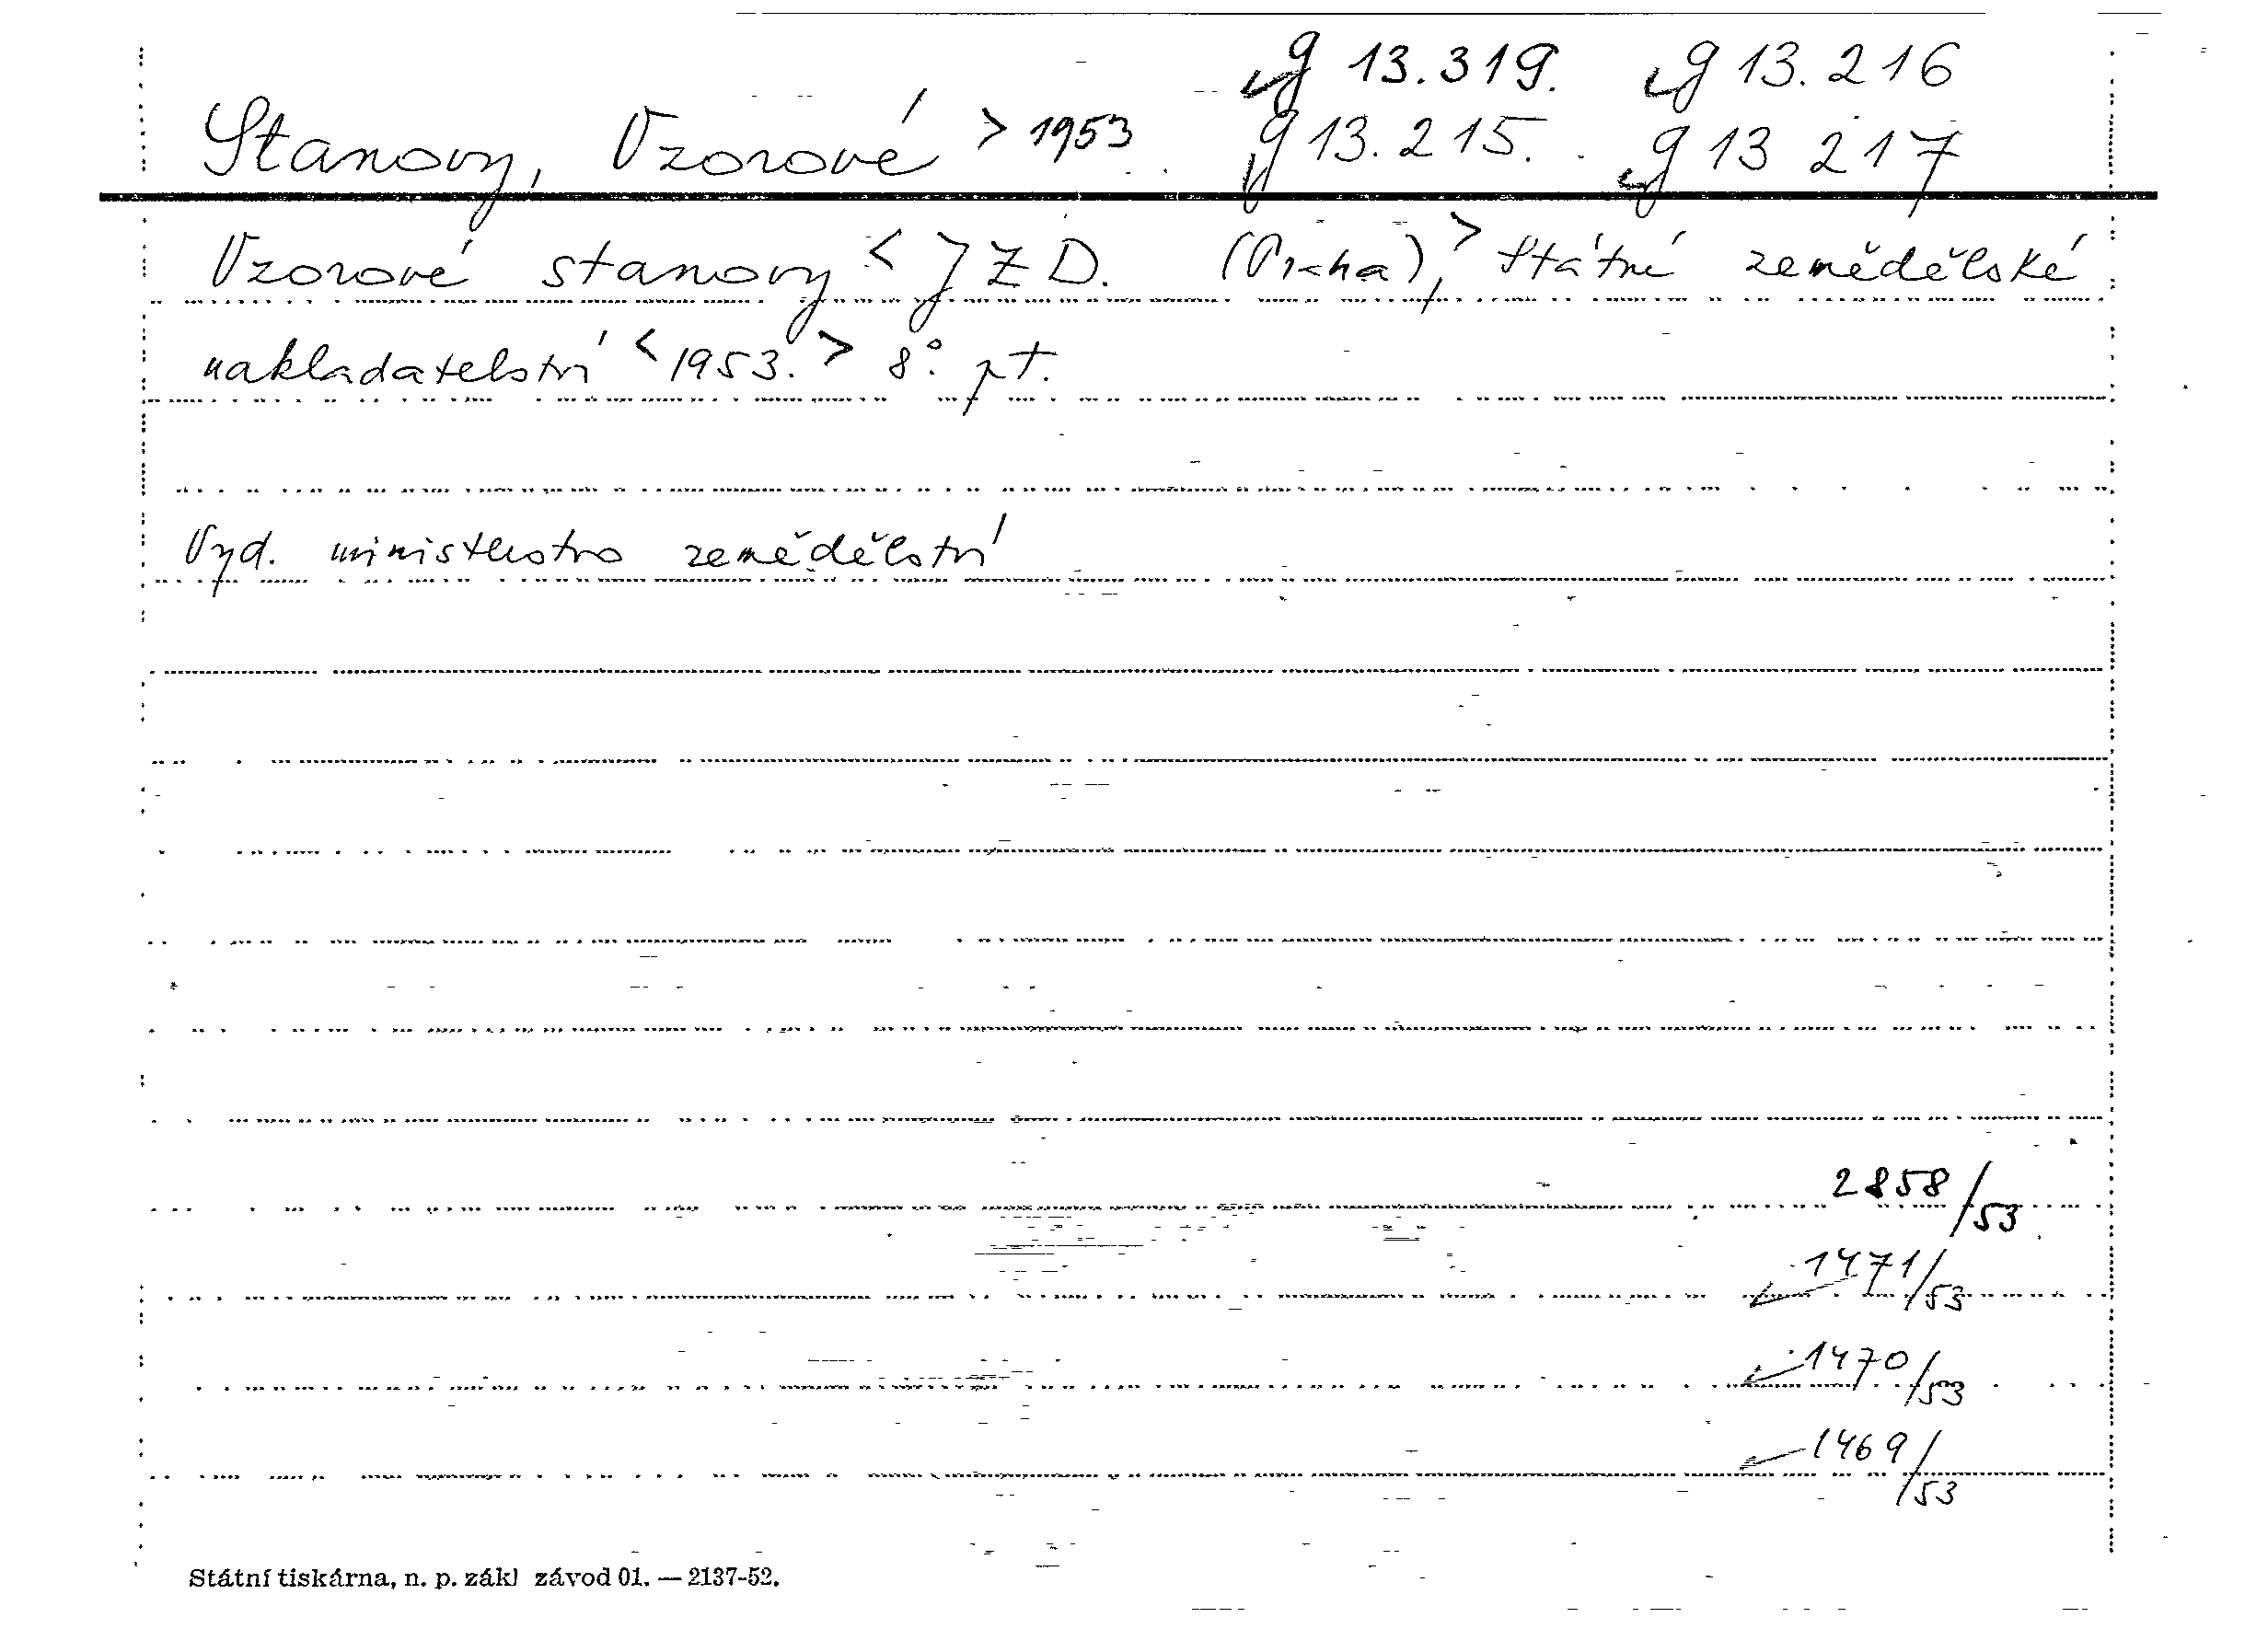 g 13.319. g 13.216
Stanovy, Vzorové > 1953 g 13.215. g 13 217
Vzorové stanovy < JZD. (Praha), > Státní zemědělské
nakladatelství < 1953. > 8°. pt.
Vyd. ministerstvo zemědělství
2858/53
1471/53
1470/53
1469/53
Státní tiskárna, n. p. zákl závod 01. — 2137-52.